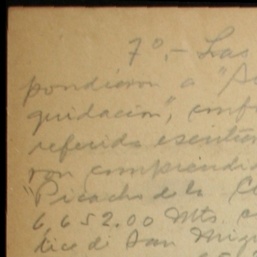 7º.- Las
pondieron a "Au
quidación", comp
referida escritu
ron comprendid
"Picacho de la Cu
6,652.00 Mts. c
tice de San Migu